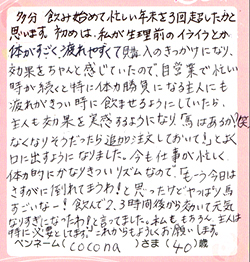 多分 飲み始めて忙しい年末を3回越したかと
思います。初めは、私が生理前のイライラとか
体がすごく疲れやすくて購入のきっかけになり、
効果をちゃんと感じていたので、自営業で忙しい
時が続くと特に体力勝負になる主人にも
疲れがひきい時に飲ませるようにしていたら、
主人も効果を実感するようになり、「馬はあるの?(笑)
なくなりそうだったら追加注文しておいて!」とよく
口に出すようになりました。今も仕事が忙しく、
体力的にかなりきついリズムなので、「もう今日は
さすがに倒れてまうわ!と思ったけどやっぱり馬
すごいなー!飲んで2、3時間後から効いて元気
なりすぎになったわ!」と言ってました。私ももちろん、主人は
特に必要としてます!これからもよろしくお願いします。
ペンネーム(cocona)さま(40)歳